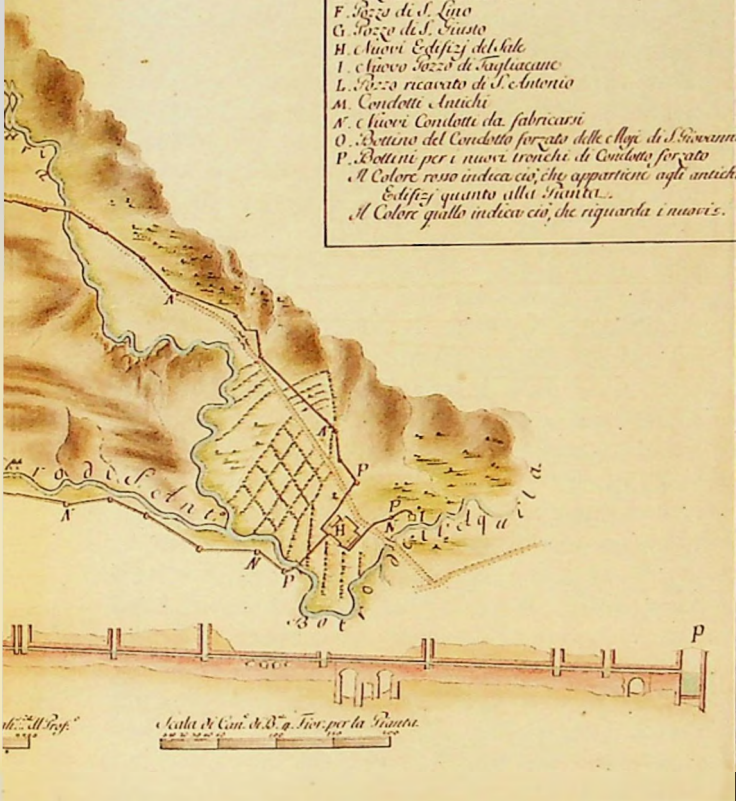 F. Pozzo di S. Lino
G. Pozzo di S. Giusto
H. Nuovi Edifizj del Sale
I. Nuovo Pozzo di Tagliacane
L. Pozzo ricavato di S. Antonio
M. Condotti Antichi
N. Nuovi Condotti da fabricarsi
O. Bottino del Condotto forzato delle Moje di S. Giovann
P. Bottini per i nuovi tronchi di Condotto forzato
Il Colore rosso indica ciò, che appartiene agli antich
Edifizj quanto alla Pianta.
Il Colore giallo indica ciò, che riguarda i nuovi.
N
N
P
L
H
P
N
ro di S. Ant.
Aquila
N
N
P
Bot
P
Il Prof.
Scala di Can. di B. 4. Fior. per la Pianta.
100
200